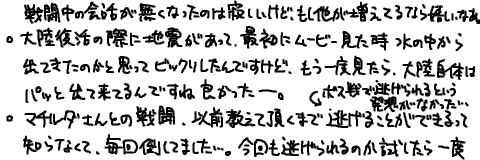 戦闘中の会話が無くなったのは寂しいけど、もし他が増えてるなら嬉しいなぁ
。大陸復活の際に地震があって、最初にムービー見た時 水の中から
出てきたのかと思ってビックリしたんですけど、もう一度見たら、大陸自体は
パッと出て来てるんですね 良かったー。
ボス戦で逃げられるという
発想がなかった…
。マチルダさんとの戦闘、以前教えて頂くまで逃げることができるって
知らなくて、毎回倒してました…。今回も逃げられるのか試したら一度